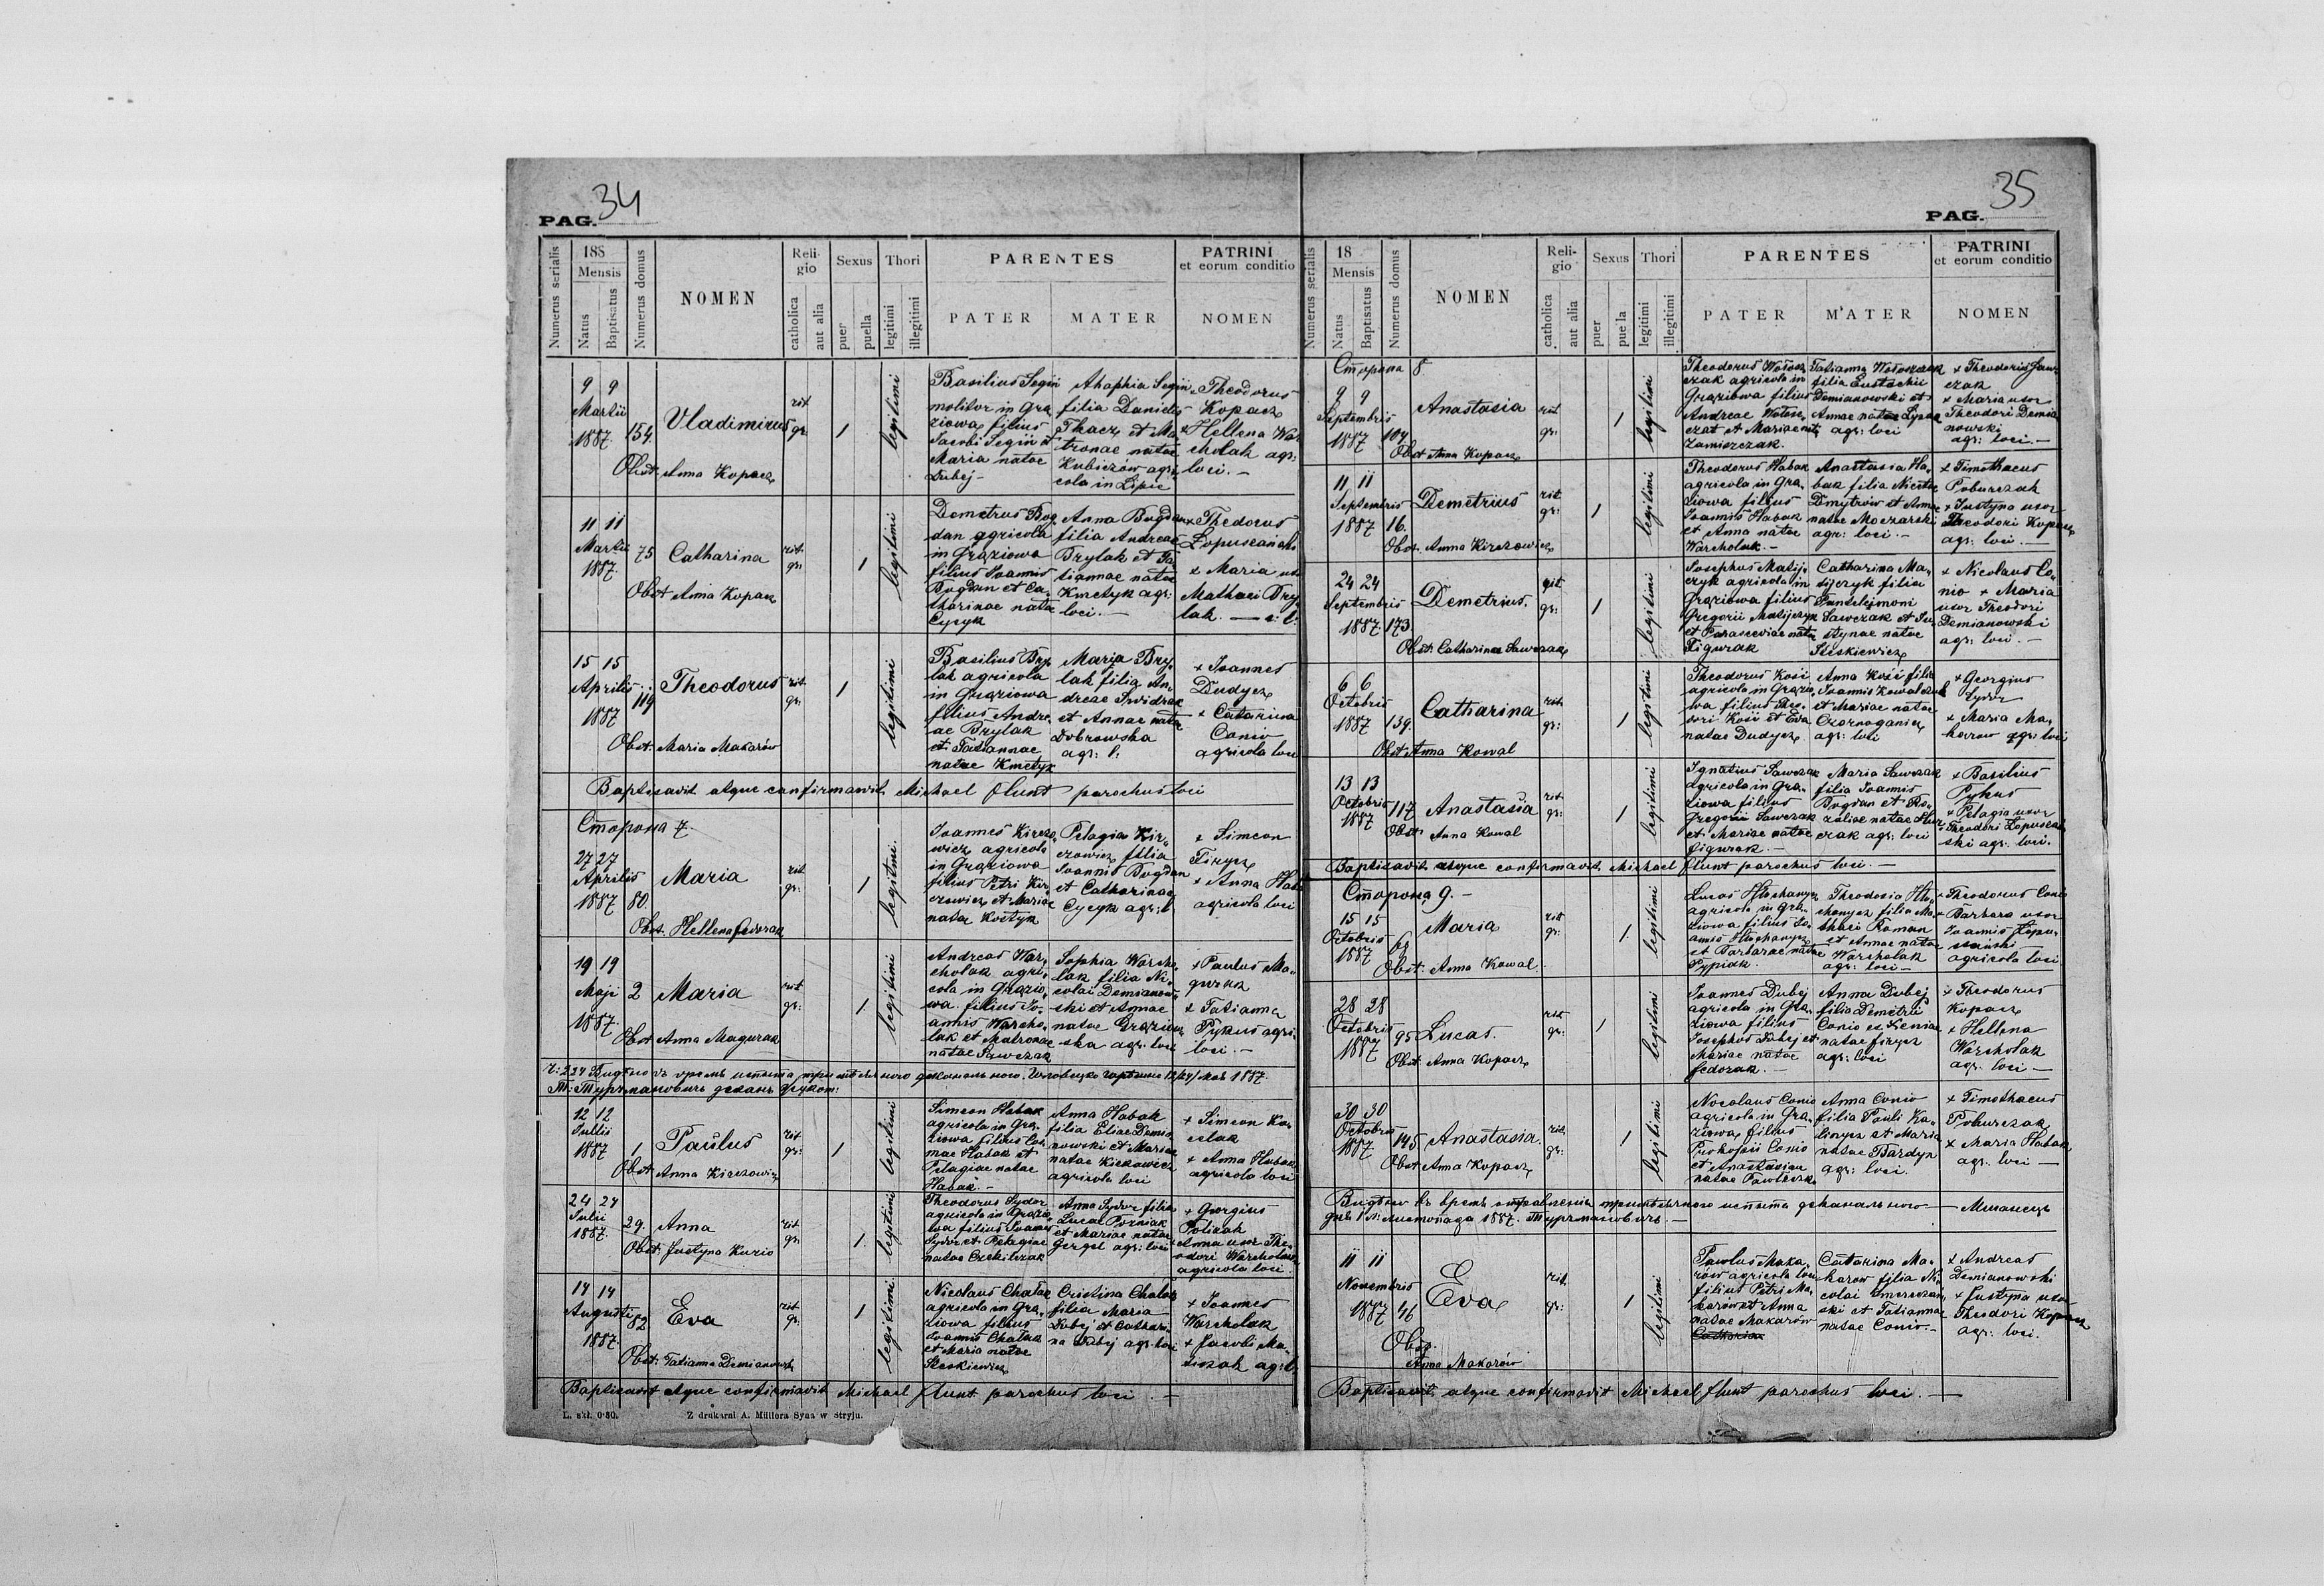 34
PAG.
Numerus serialis
188
Mensis
Natus
Baptisatus
Numerus domus
NOMEN
Religio
catholica
aut alia
Sexus
puer
puella
Thori
legitimi
illegitimi
PARENTES
PATER
MATER
PATRINI
et eorum conditio
NOMEN
9 9
Martii
1887.
154.
Vladimirus
rit
gr:
1
legitimi
Obst: Anna Kopacz
Basilius Segin
molitor in Gra
ziowa filius
Jacobi Segin et
Maria natae
Dubej -
Ahaphia Segin
filia Danielis
Tkacz et Ma
tronae natae
Kubiczów agri
cola in Lipie
x Theodorus
Kopacz
x Hellena War
cholak agr:
loci. -
11 11
Martii
1887.
75
Catharina
rit.
gr:
1
legitimi
Obst Anna Kopacz
Demetrus Bog
dan agricola
in Graziowa
filius Joannis
Bogdan et Ca
tharinae natae
Cycyk
Anna Bogdan
filia Andreae
Brylak et Ta
tiannae natae
Kmetyk agr:
loci. -
x Thedorus
Lopuszański
x Maria uxor
Mathaei Bry
lak. — a: l:
15 15
Aprilis
1887
119
Theodorus
rit.
gr:
1
legitimi
Obst: Maria Makarów
Basilius Bry
lak agricola
in Graziowa
filius Andre
ae Brylak
et Tatiannae
natae Kmetyk
Maria Bry
lak filia An
dreae Swidrak
et Annae natae
Dobrowska
agr: l:
x Joannes
Dudycz
x Catarina
Conio
agricola loci
Baptisavit atque confirmavit Michael Flunt parochus loci
Сторона 7.
27 27
Aprilis
1887
80.
Maria
rit
gr:
1
legitimi.
Obst. Hellena Fedorak
Joannes Kircza
wicz agricola
in Graziowa
filius Petri Kir
czowicz et Mariae
natae Kostyk
Pelagia Kir
czowicz filia
Joannis Bogdan
et Catharinae
Cycyk agr: l
x Simeon
Firycz
x Anna Hab
agricola loci
19 19
Maji
1887.
2
Maria
rit
gr:
1
legitimi
Obst Anna Magurak
Andreas War
cholak agri
cola in Grazio
wa filius Jo
annis Warcho
lak et Matronae
natae Sawczak
Sophia Warcho
lak filia Ni
colai Demianow
ski et Annae
natae Graziow
ska agr: loci
x Paulus Ma
gurak
x Tatianna
Pykus agri:
loci. -
12 12
Julii
1887
1
Paulus
rit
gr:
1
legitimi
Obst Anna Kirczowicz
Simeon Habak
agricola in Gra
ziowa filius Cos
mae Habak et
Pelagiae natae
Habak. -
Anna Habak
filia Eliae Demia
nowski et Mariae
natae Kirczowicz
agricola loci
x Simeon Ko
x Anna Habak
agricola loci
24 24
Julii
1887.
29.
Anna
rit
gr:
1.
legitimi
Obst: Justyna Kurio
Theodorus Sydor
agricola in Grazio
wa filius Joannis
Sydor et Pelagiae
natae
Anna Sydor filia
Lucae Pozniak
et Mariae natae
Gergel agr: loci
x Georgius
Policzak
Anna uxor The
odori Warcholak
agricola loci
14 14
Augusti
1887.
82
Eva
rit
gr:
1
legitimi
Obst: Tatianna Demianowska
Nicolaus Chalak
agricola in Gra
ziowa filius
Joannis Chalak
et Maria natae
Steskiewicz
Cristina Chalak
filia Maria
Dubej et Cathari
na Dubej agr: loci
x Joannes
Warcholak
x Jacobi Ma
agr: l:
Baptisavit atque confirmavit Michael Flunt parochus loci. -
L. skł. 0·80. Z drukarni A. Müllera Syna w Stryju.
35
PAG.
Numerus serialis
18
Mensis
Natus
Baptisatus
Numerus domus
NOMEN
Religio
catholica
aut alia
Sexus
puer
pue la
Thori
legitimi
illegitimi
PARENTES
PATER
MATER
PATRINI
et eorum conditio
NOMEN
Сторона 8
9 9
Septembris
1887
104
Anastasia
rit
gr:
1
legitimi
Obst Anna Kopacz
Theodorus Wolosz
czak agricola in
Graziowa filius
Andreae Wolosz
czak et Mariae natae
Zamiszczak.
Tatianna Woloszczak
filia Eustachii
Demianowski et
Annae natae Lysak
agr: loci
x Theodoris Saw
czak
x Maria uxor
Theodori Demia
nowski
agr: loci. -
11 11
Septembris
1887
16.
Demetrius
rit
gr:
1
legitimi
Obst. Anna Kirczowicz
Theodorus Habak
agricola in Gra
ziowa filius
Joannis Habak
et Anna natae
Warcholak. -
Anastasia Ha
bak filia Nicetae
Dmytrów et Annae
natae Moczarski
agr: loci. -
x Timothaeus
Poburczak
x Justyna uxor
Theodori Kopacz
agr: loci. -
24 24
Septembris
1887.
173.
Demetrius.
rit
gr:
1
legitimi
Obst: Catharina Sawczak
Josephus Matij
czyk agricola in
Graziowa filius
Gregorii Matijczyk
et Parasceviae natae
Figurak
Catharina Ma
tijczyk filia
Pantelejmoni
Sawczak et Ju
stynae natae
Steskiewicz
x Nicolaus Co
nio x Maria
uxor Theodori
Demianowski
agr: loci. -
6 6
Octobris
1887
139.
Catharina
rit.
gr:
1
legitimi
Obst: Anna Kowal
Theodorus Kosi
agricola in Grazio
wa filius Theo
dori Kosi et Eva
natae Dudycz
Anna Kosi filia
Joannis Kowalczuk
et Mariae natae
agr: loci
x Georgius
Sydor
x Maria Ma
karow agr: loci
13 13
Octobris
1887
117
Anastasia
rit
gr:
1
legitimi
Obst: Anna Kowal
Ignatius Sawczak
agricola in Gra
ziowa filius
Gregorii Sawczak
et Mariae natae
figurak. -
Maria Sawczak
filia Joannis
Bogdan et Ro
zaliae natae
czak agr: loci
x Basilius
Pykus
x Pelagia uxor
Theodori Lopuszań
ski agr: loci.
Baptisavit atque confirmavit Michael Flunt parochus loci. -
Сторона 9. -
15 15
Octobris
1887
Maria
rit
gr:
1.
legitimi
Obst: Anna Kowal.
Lucas Hlochanycz
agricola in Gra
ziowa filius Jo
annis Hlochanycz
et Barbarae natae
Pypiak.
Theodosia Hlo
chanycz filia Ma
thaei Roman
et Annae natae
Warcholak
agr: loci -
x Theodorus Conio
x Barbara uxor
Joannis Lopu
szański
agricola loci
28 28
Octobris
1887
95
Lucas.
rit
gr:
1
legitimi
Obst: Anna Kopacz
Joannes Dubej
agricola in Gra
ziowa filius
Josephus Dubej et
Mariae natae
fedorak. -
Anna Dubej
filia Demetrii
Conio et Xeniae
natae firycz
agr: loci
x Theodorus
Kopacz
x Hellena
Warcholak
agr: loci -
30 30
Octobris
1887
145
Anastasia.
rit.
gr:
1
legitimi
Obst: Anna Kopacz
Nocolaus Conio
agricola in Gra
ziowa filius
Prokopii Conio
et Anastasiae
natae Pawliszko
Anna Conio
filia Pauli Ka
linycz et Maria
natae Bardyn
agr: loci.
x Timothaeus
Poburczak
x Maria Habak
agr. loci -
11 11
Novembris
1887
46
Eva
rit.
gr:
1
legitimi
Obst.
Anna Makarów
Pawlus Maka
rów agricola loci
filius Petri Ma
karow et Anna
natae Makarów
Catarina Ma
karow filia Ni
colai Smereczan
ski et Tatianna
natae Conio. -
x Andreas
Demianowski
x Justyna uxor
Theodori Kopacz
agr: loci.
Baptisavit atque confirmavit Michael Flunt parochus loci. —